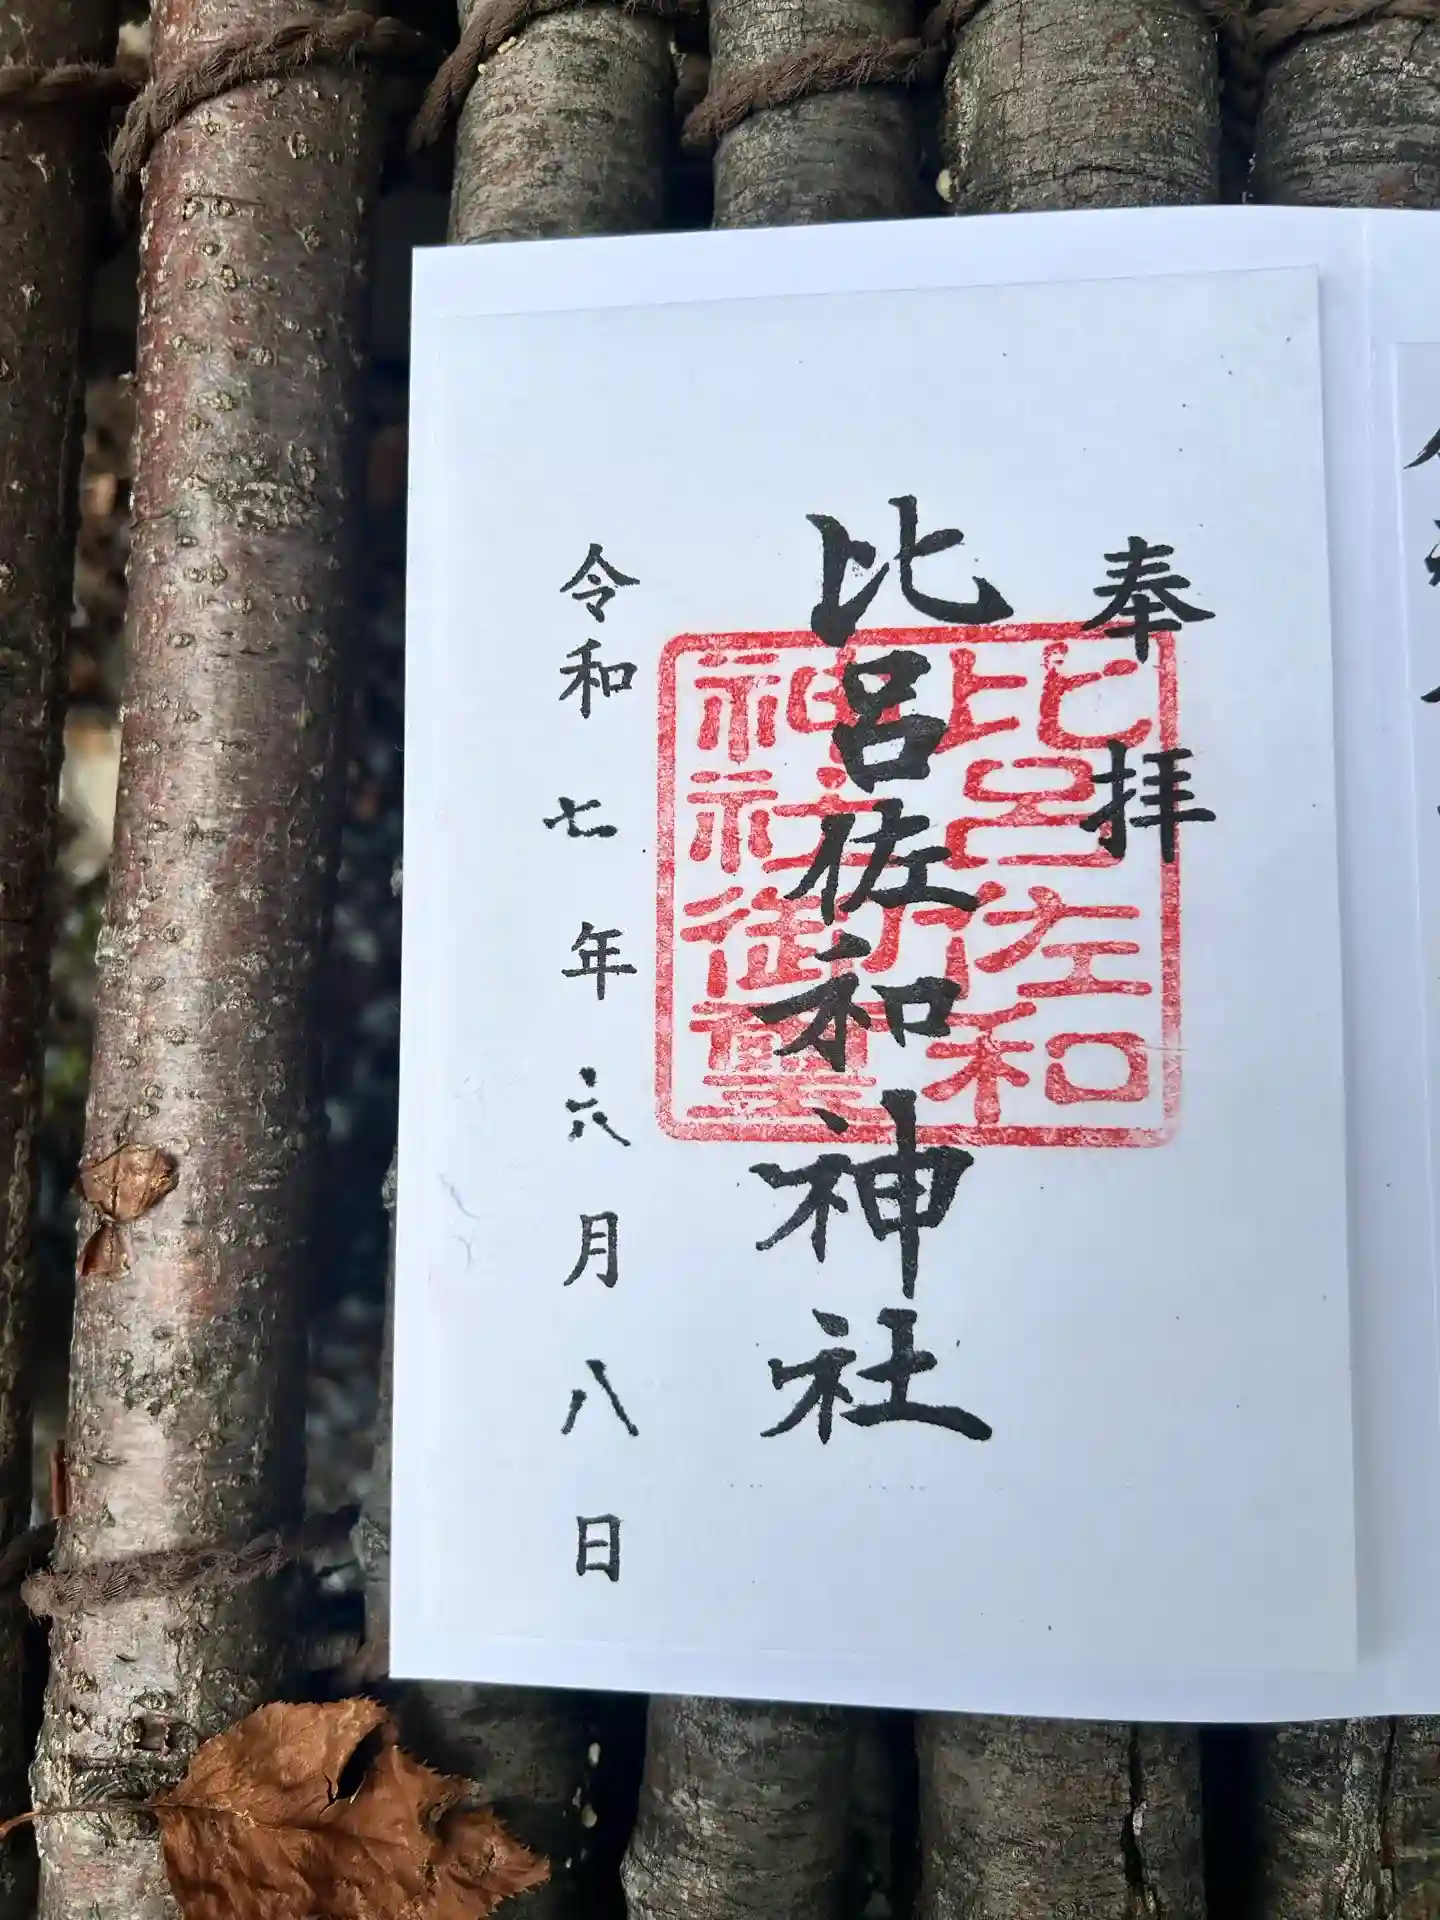 奉拝
比呂佐和神社
比呂佐和
神社御璽
令和七年六月八日